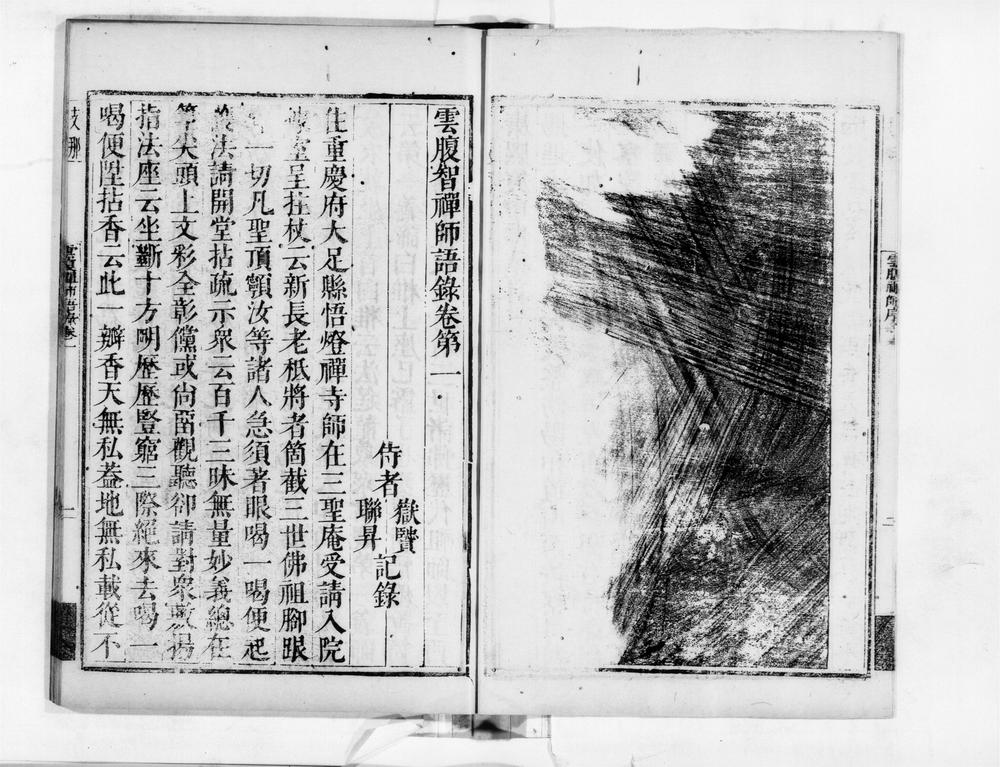 雲腹智禪師語錄卷第一
侍者
嶽贒
聯昇
記錄
住重慶府大足縣悟燈禪寺師在三聖庵受請入院
室呈拄杖云新長老秪將者箇截三世佛祖腳跟
一切凡聖頂顖汝等諸人急須著眼喝一喝便起
法請開堂拈疏示衆云百千三昧無量妙義總在
筆尖頭上文彩全彰儻或尙畱觀聽卻請對衆敷揚
指法座云坐斷十方明歷歷豎窮三際絕來去喝一
喝便陞拈香云此一瓣香天無私蓋地無私載從不
支那
二
雲腹禪師序
二